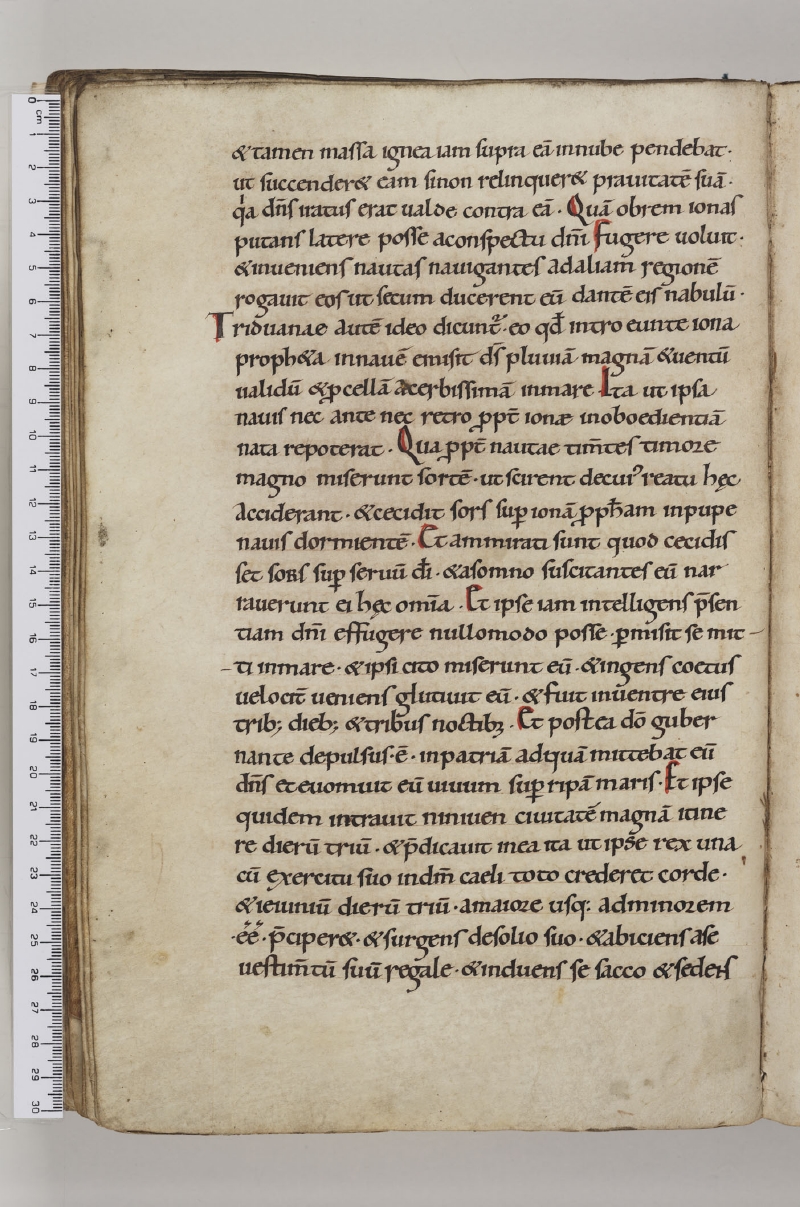 &tamen massa ignea iam supra eā innube pendebat·
ut succender& eam sinon relinquer& prauitatē suā·
q̇a dn̄s iratus erat ualde contra eā· Quā obrem ionas
putans latere posse aconspectu dn̄i Fugere uoluit·
&inueniens nautas nauigantes adaliam regionē
rogauit eos ut secum ducerent eū dantē eis nabulū·
Triduanae autē ideo dicunt᷑· eo qđ intro eunte iona
proph&a innauē emisit ds̄ pluuiā magnā &uentū
ualidū &ꝓcellā acerbissimā inmare Ita ut ipsa
nauis nec ante nec retro ꝓpt̄ ionæ inoboedientiā
nata repoterat· Qua ꝓpt̄ nautae tim̄tes timore
magno miserunt sortē· ut scirent decuiꝰ reatu hęc
Acciderant· &cecidit sors suꝑ ionā ꝓph̄am inpupe
nauis dormientē· Et ammirati sunt quod cecidis
set sors suꝑ seruū dī· &asomno suscitantes eū nar
rauerunt ei hęc om̄ia· Et ipse iam intelligens p̄sen
tiam dn̄i effugere nullomodo posse· ꝑmisit se mit–
–ti inmare· &ipsi cito miserunt eū· &ingens coetus
uelocit̄ ueniens glutiuit eū· &fuit inuentre eius
trib; dieb; &tribus noctibꝫ· Et postea dō guber
nante depulsus·ē· inpatriā adquā mittebat eū
dn̄s et euomuit eū uiuum suꝑ ripā maris· Et ipse
quidem intrauit niniuen ciuitatē magnā itine
re dierū triū· &p̄dicauit inea ita ut ipse rex una
cū exercitu suo indn̄m caeli toto crederet corde·
&ieiuniū dierū triū· amaiore usq: adminorem
·éé· p̄ciper&· &surgens desolio suo· &abiciens ase
uestim̄tū suū regale· &induens se sacco &sedens